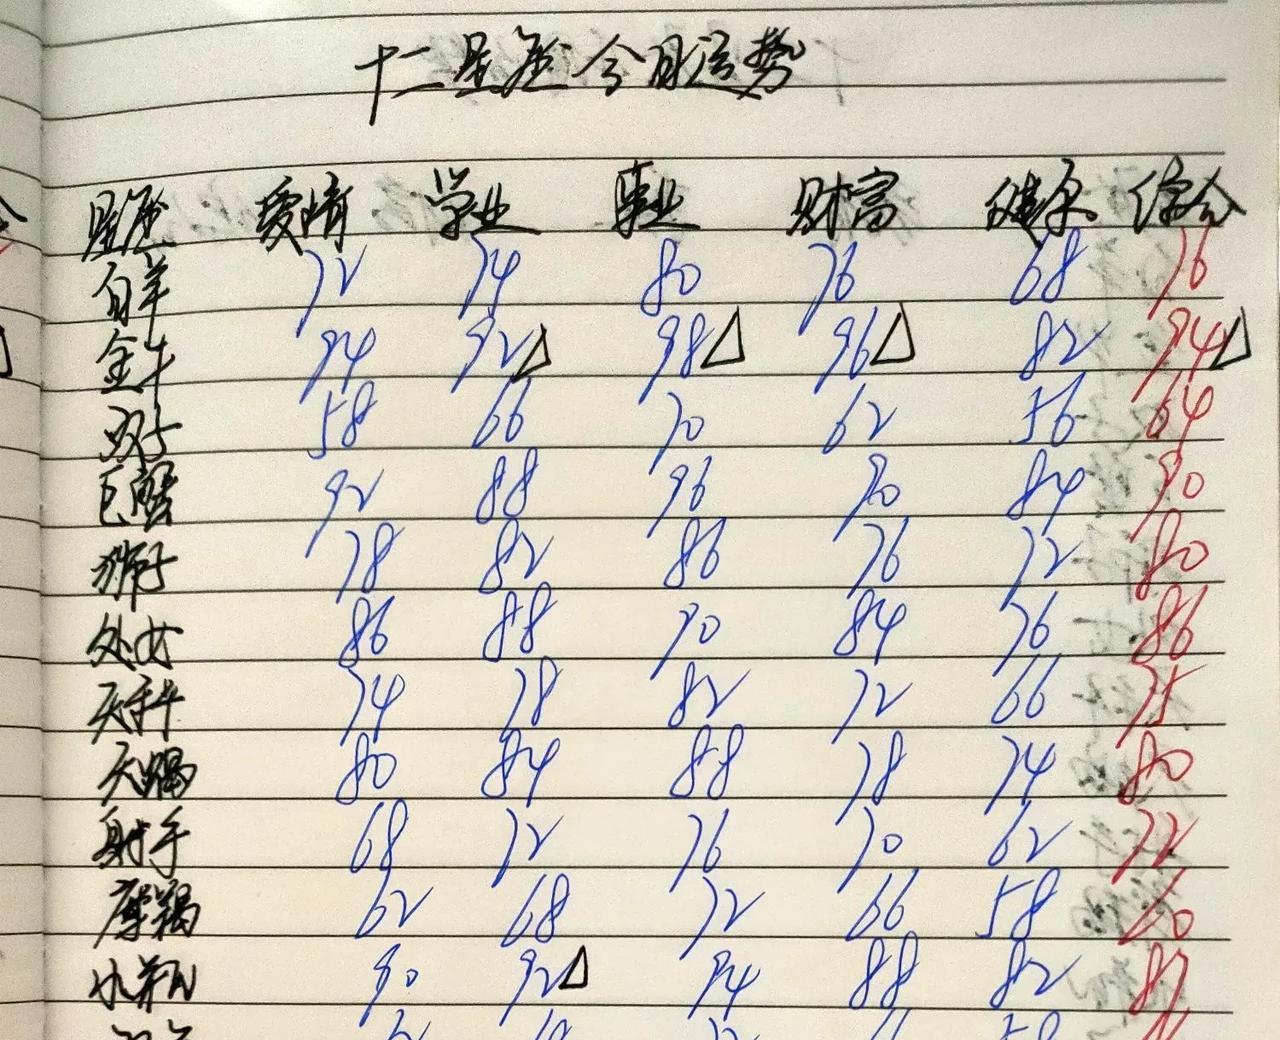 十二星座今日运势
星座 爱情 学业 事业 财富 健康 综合
白羊 72 74 80 76 68 76
金牛 94 92△ 98△ 96△ 82 94△
双子 58 66 70 62 56 64
巨蟹 92 88 96 90 84 90
狮子 78 82 86 76 72 80
处女 86 88 90 84 76 86
天秤 74 78 82 72 66 75
天蝎 80 84 88 78 74 80
射手 68 72 76 70 62 72
摩羯 62 68 72 66 58 60
水瓶 90 92△ 94 88 82 87